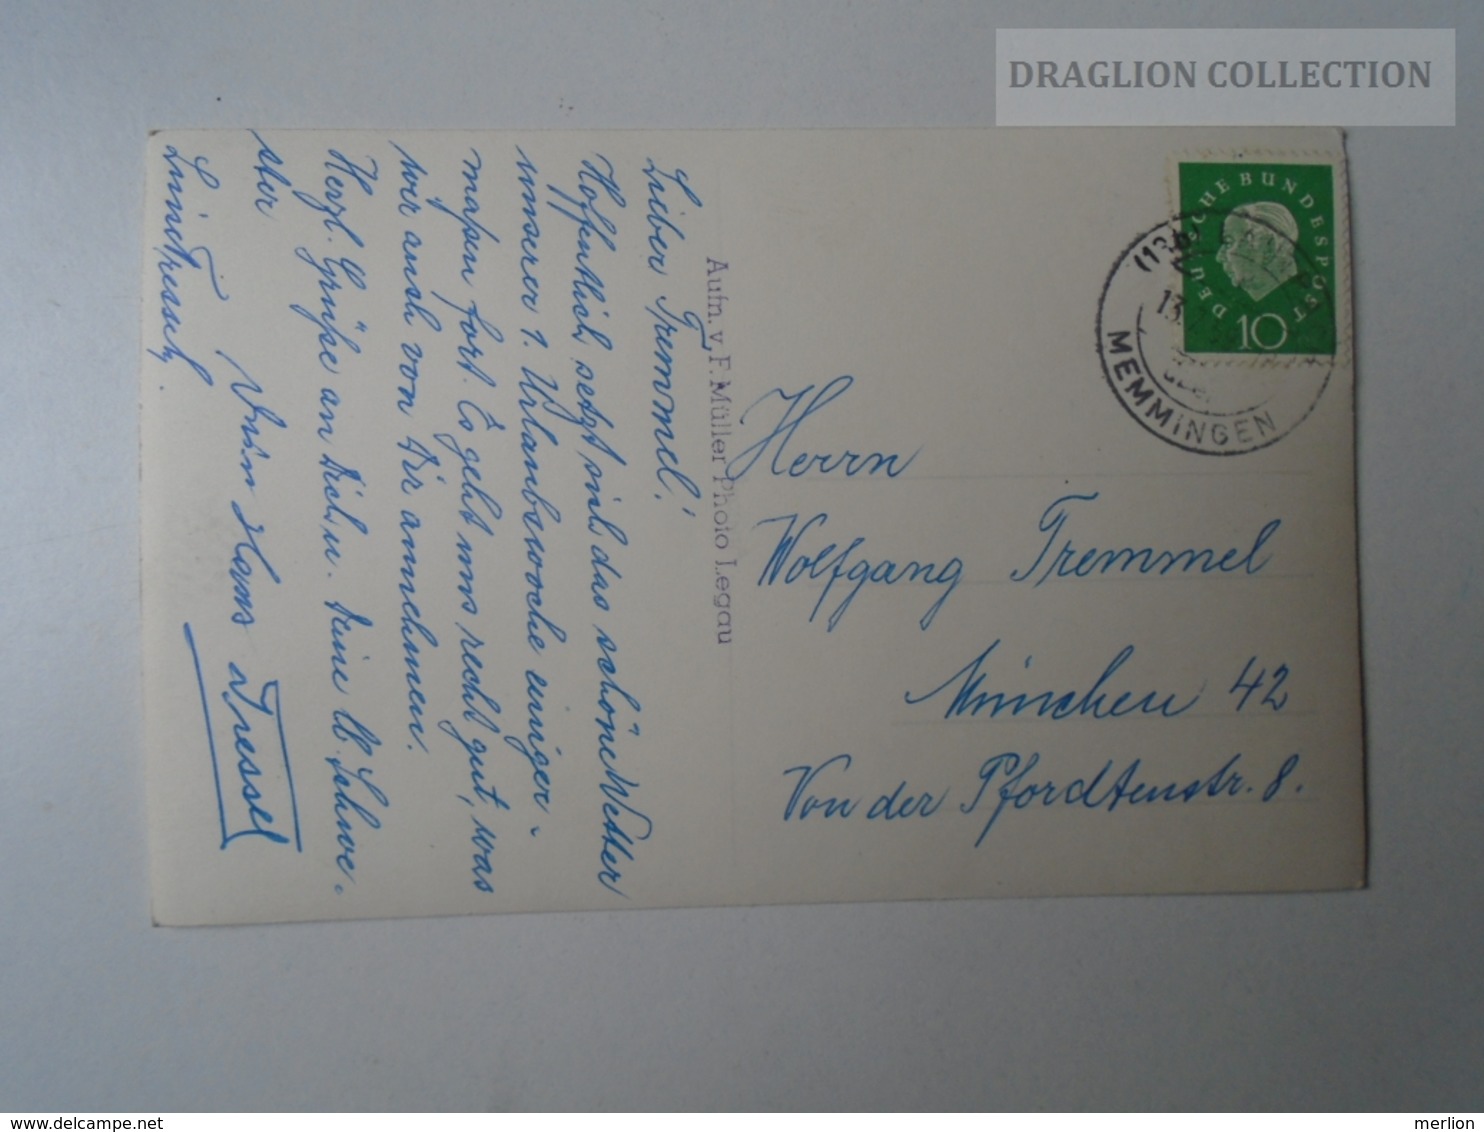 DRAGLION COLLECTION
DEUTSCHE BUNDESPOST
10
MEMMINGEN
Lieber Tremmel!
Hoffentlich setzt sich das schöne Wetter
unserer 1. Urlaubswoche einiger-
maßen fort. Es geht uns recht gut, was
wir auch von Dir annehmen.
Herzl. Grüße an Dich u. Deine lb. Schwe-
ster
Dein Hans Dressel
Aufn. v. F. Müller Photo Legau
Herrn
Wolfgang Tremmel
München 42
Von der Pfordtenstr. 8.
delcampe.net
merlion